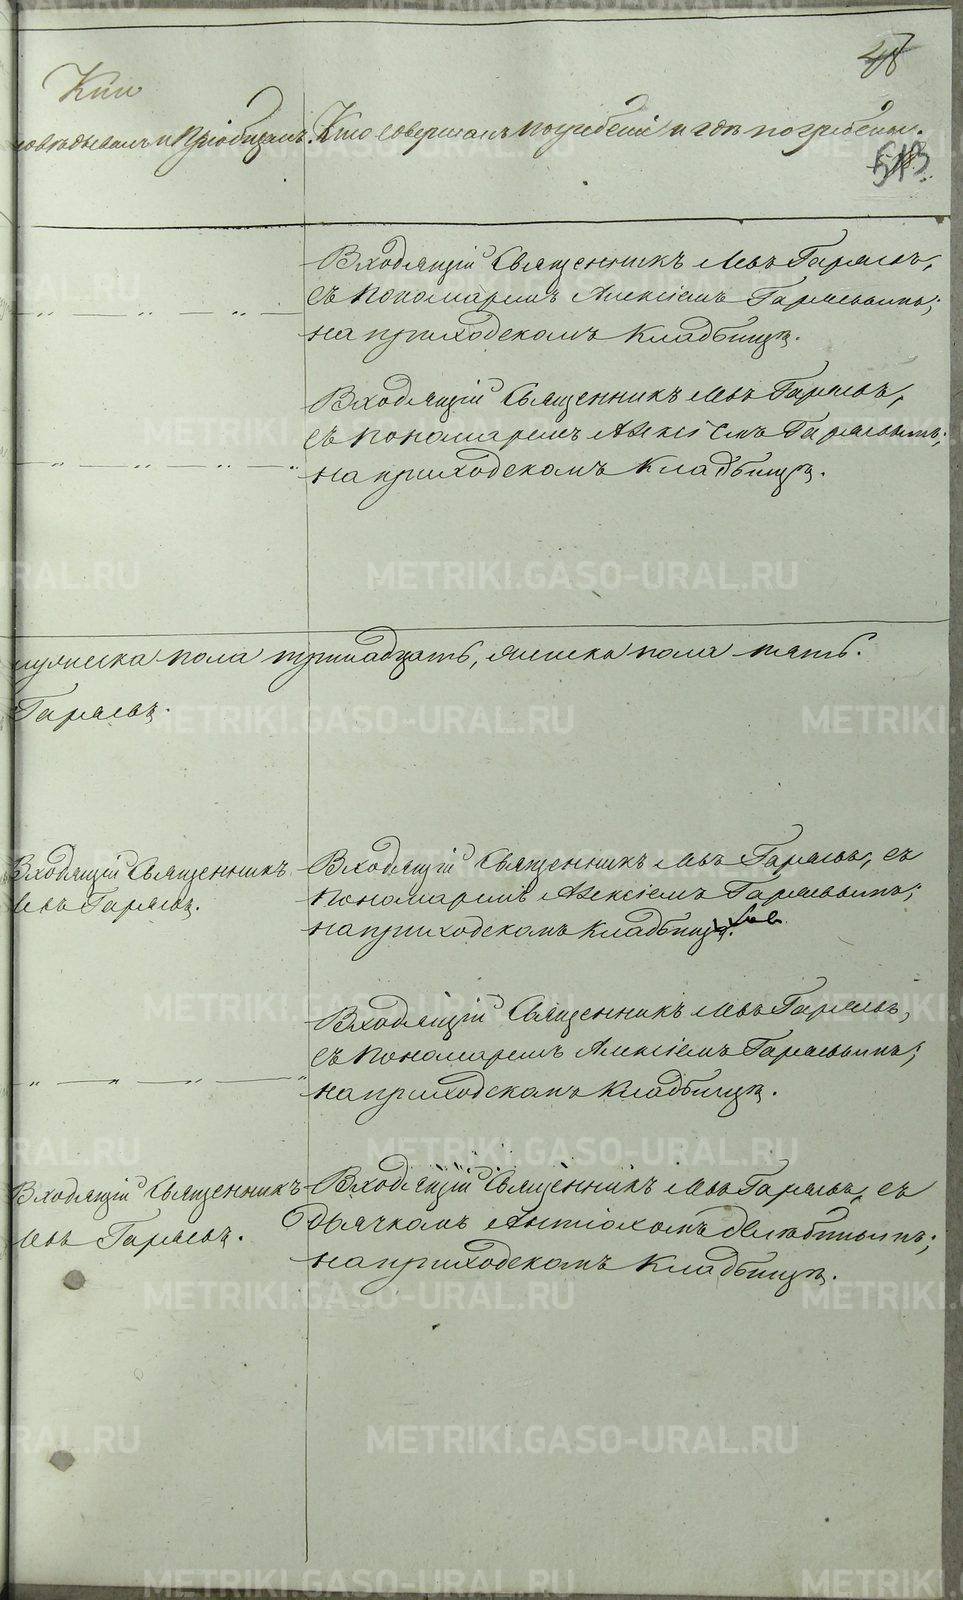 48
Кто
исповѣдывалъ и Пріобщалъ. Кто совершалъ погребеніе и гдѣ погребены.
513
Входящій Священникъ Левъ Гаряевъ,
съ Пономаремъ Алексіемъ Гаряевымъ;
на приходскомъ Кладбищѣ.
Входящій Священникъ Левъ Гаряевъ,
съ Пономаремъ Алексіемъ Гаряевымъ;
на приходскомъ Кладбищѣ.
мужеска пола тринадцать, женска пола пять.
Гаряевъ.
Входящій Священникъ
Левъ Гаряевъ.
Входящій Священникъ Левъ Гаряевъ, съ
Пономаремъ Алексіемъ Гаряевымъ;
на приходскомъ Кладбищѣ.
Входящій Священникъ Левъ Гаряевъ,
съ Пономаремъ Алексіемъ Гаряевымъ;
на приходскомъ Кладбищѣ.
Входящій Священникъ
Левъ Гаряевъ.
Входящій Священникъ Левъ Гаряевъ, съ
Дьячкомъ Антіохомъ
на приходскомъ Кладбищѣ.
METRIKI.GASO-URAL.RU